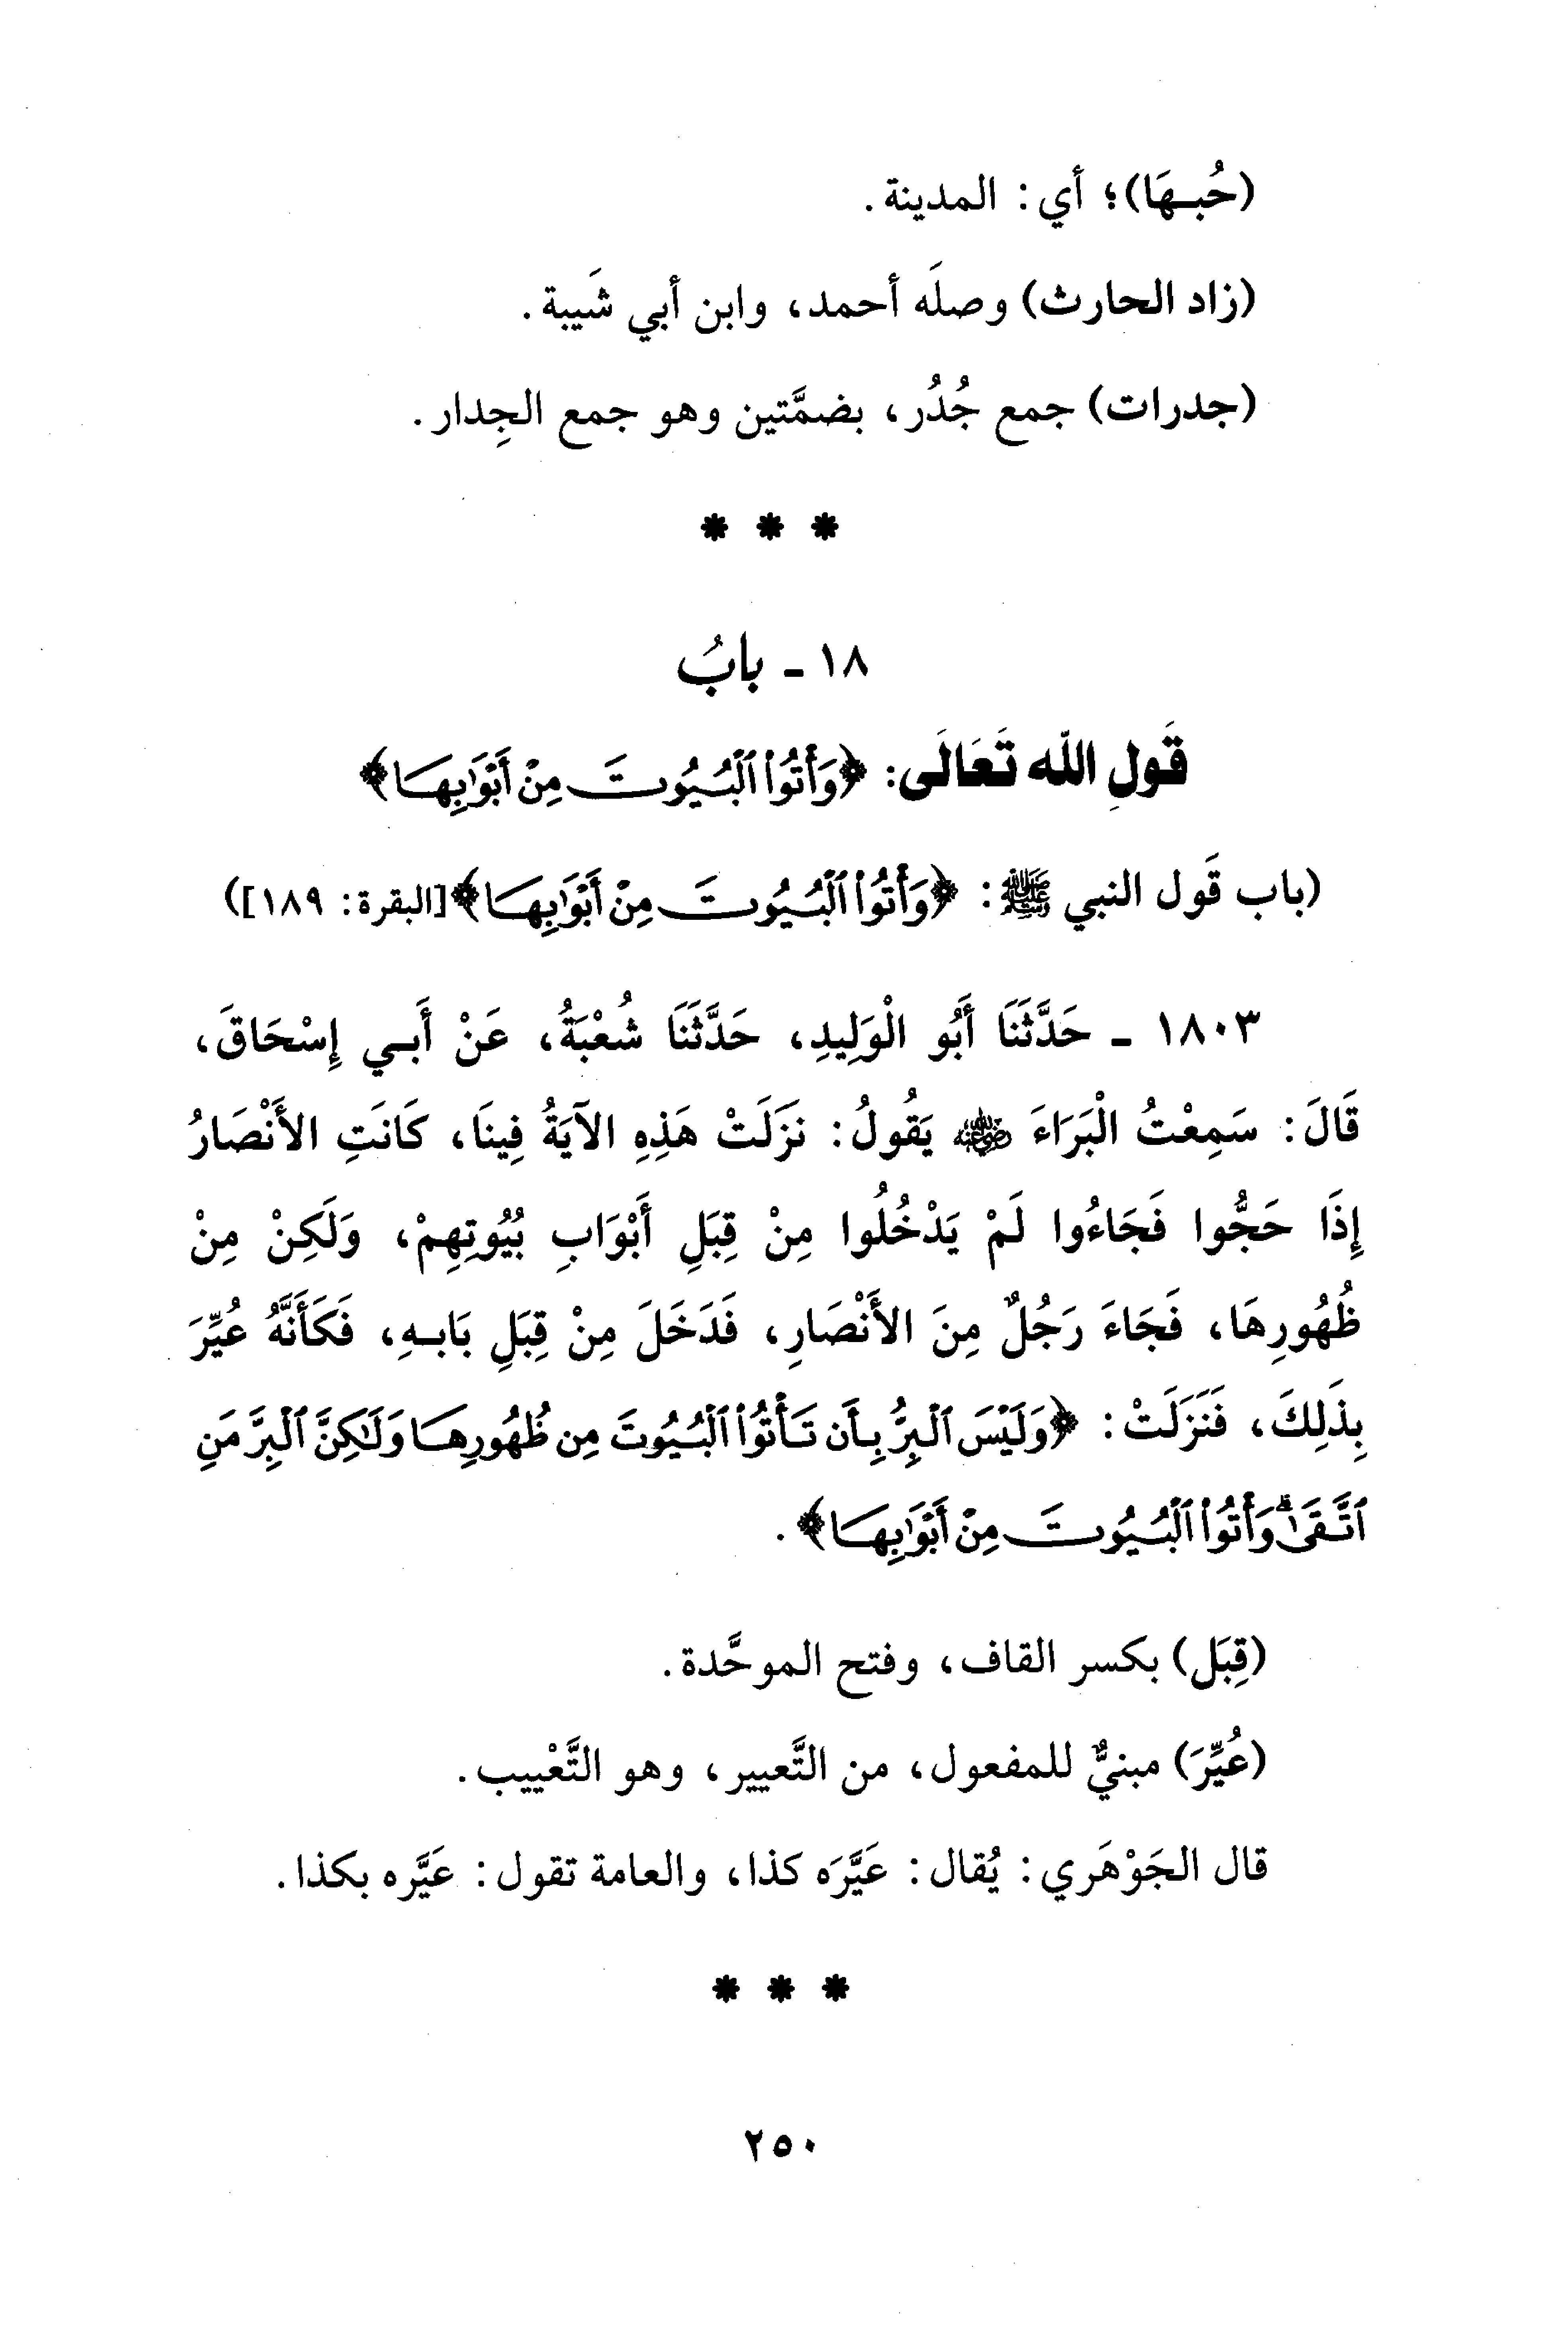 (حُبـهَا)؛ أي: المدينة.
(زاد الحارث) وصلَه أحمد، وابن أبي شَيبة.
(جدرات) جمع جُدُر، بضمَّتين وهو جمع الجِدار.
* * *
١٨ - بابُ
قَولِ اللّه تَعَالَى: ﴿وَأْتُوا۟ ٱلْبُيُوتَ مِنْ أَبْوَٰبِهَا﴾
(باب قَول النبي ﷺ: ﴿وَأْتُوا۟ ٱلْبُيُوتَ مِنْ أَبْوَٰبِهَا﴾[البقرة: ١٨٩])
١٨٠٣ - حَدَّثَنَا أَبُو الْوَلِيدِ، حَدَّثَنَا شُعْبَةُ، عَنْ أَبـي إِسْحَاقَ،
قَالَ: سَمِعْتُ الْبَرَاءَ رضي الله عنه يَقُولُ: نَزَلَتْ هَذِهِ الآيَةُ فِينَا، كَانَتِ الأَنْصَارُ
إِذَا حَجُّوا فَجَاءُوا لَمْ يَدْخُلُوا مِنْ قِبَلِ أَبْوَابِ بُيُوتِهِمْ، وَلَكِنْ مِنْ
ظُهُورِهَا، فَجَاءَ رَجُلٌ مِنَ الأَنْصَارِ، فَدَخَلَ مِنْ قِبَلِ بَابـهِ، فَكَأَنَّهُ عُيِّرَ
بِذَلِكَ، فَنَزَلَتْ: ﴿وَلَيْسَ ٱلْبِرُّ بِأَن تَأْتُوا۟ ٱلْبُيُوتَ مِن ظُهُورِهَا وَلَٰكِنَّ ٱلْبِرَّ مَنِ
ٱتَّقَىٰ ۗ وَأْتُوا۟ ٱلْبُيُوتَ مِنْ أَبْوَٰبِهَا﴾.
(قِبَل) بكسر القاف، وفتح الموحَّدة.
(عُيِّرَ) مبنيٌّ للمفعول، من التَّعيير، وهو التَّعْييب.
قال الجَوْهَري: يُقال: عَيَّرَه كذا، والعامة تقول: عَيَّره بكذا.
* * *
٢٥٠